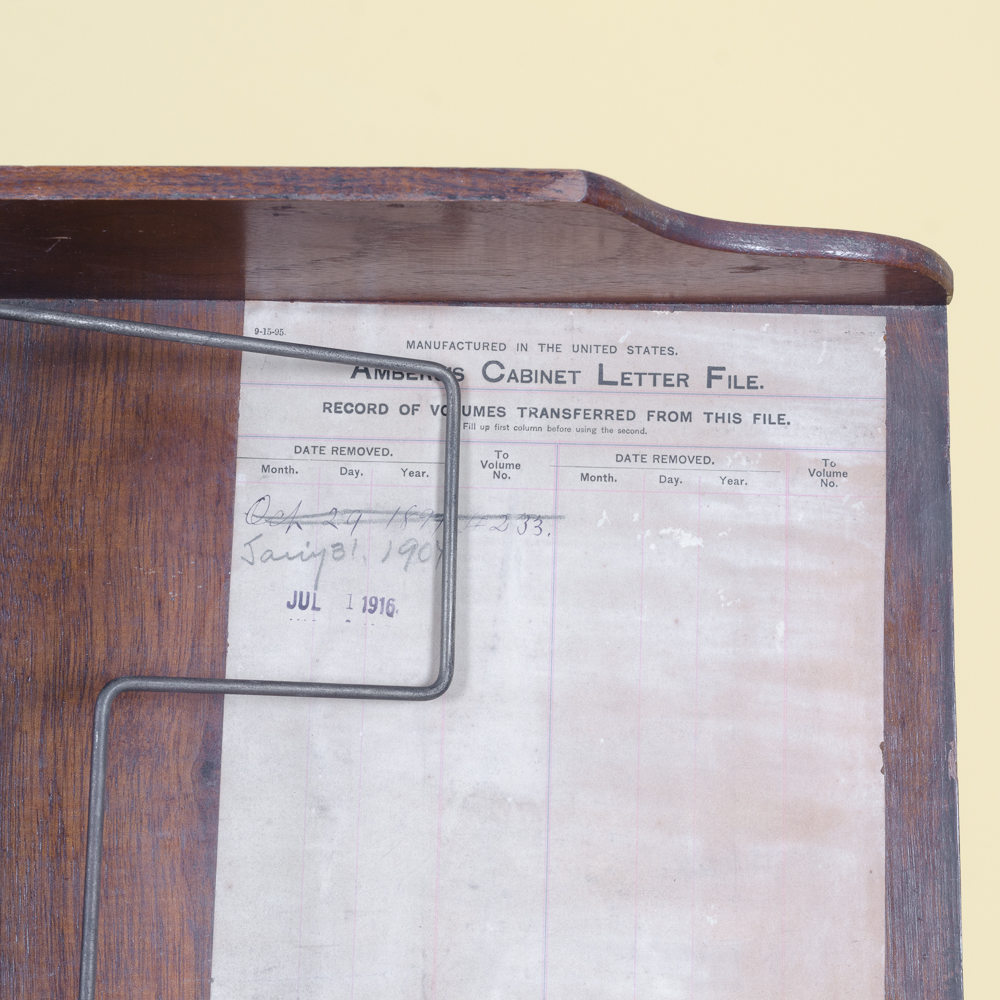 9-15-95.
MANUFACTURED IN THE UNITED STATES.
AMBERG'S CABINET LETTER FILE.
RECORD OF VOLUMES TRANSFERRED FROM THIS FILE.
Fill up first column before using the second.
DATE REMOVED. To Volume No. DATE REMOVED. To Volume No.
Month. Day. Year. Month. Day. Year.
Oct 29 233.
Jany 31, 190
JUL 1 1916